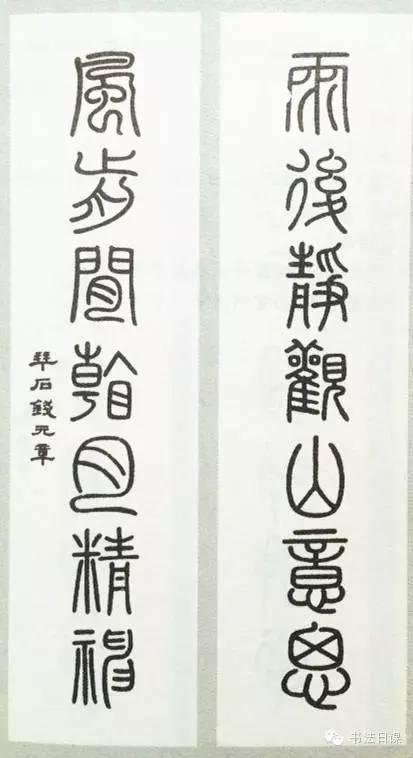 雨後靜觀山意思
風前閒看月精神
琴石錢元章
书法日课